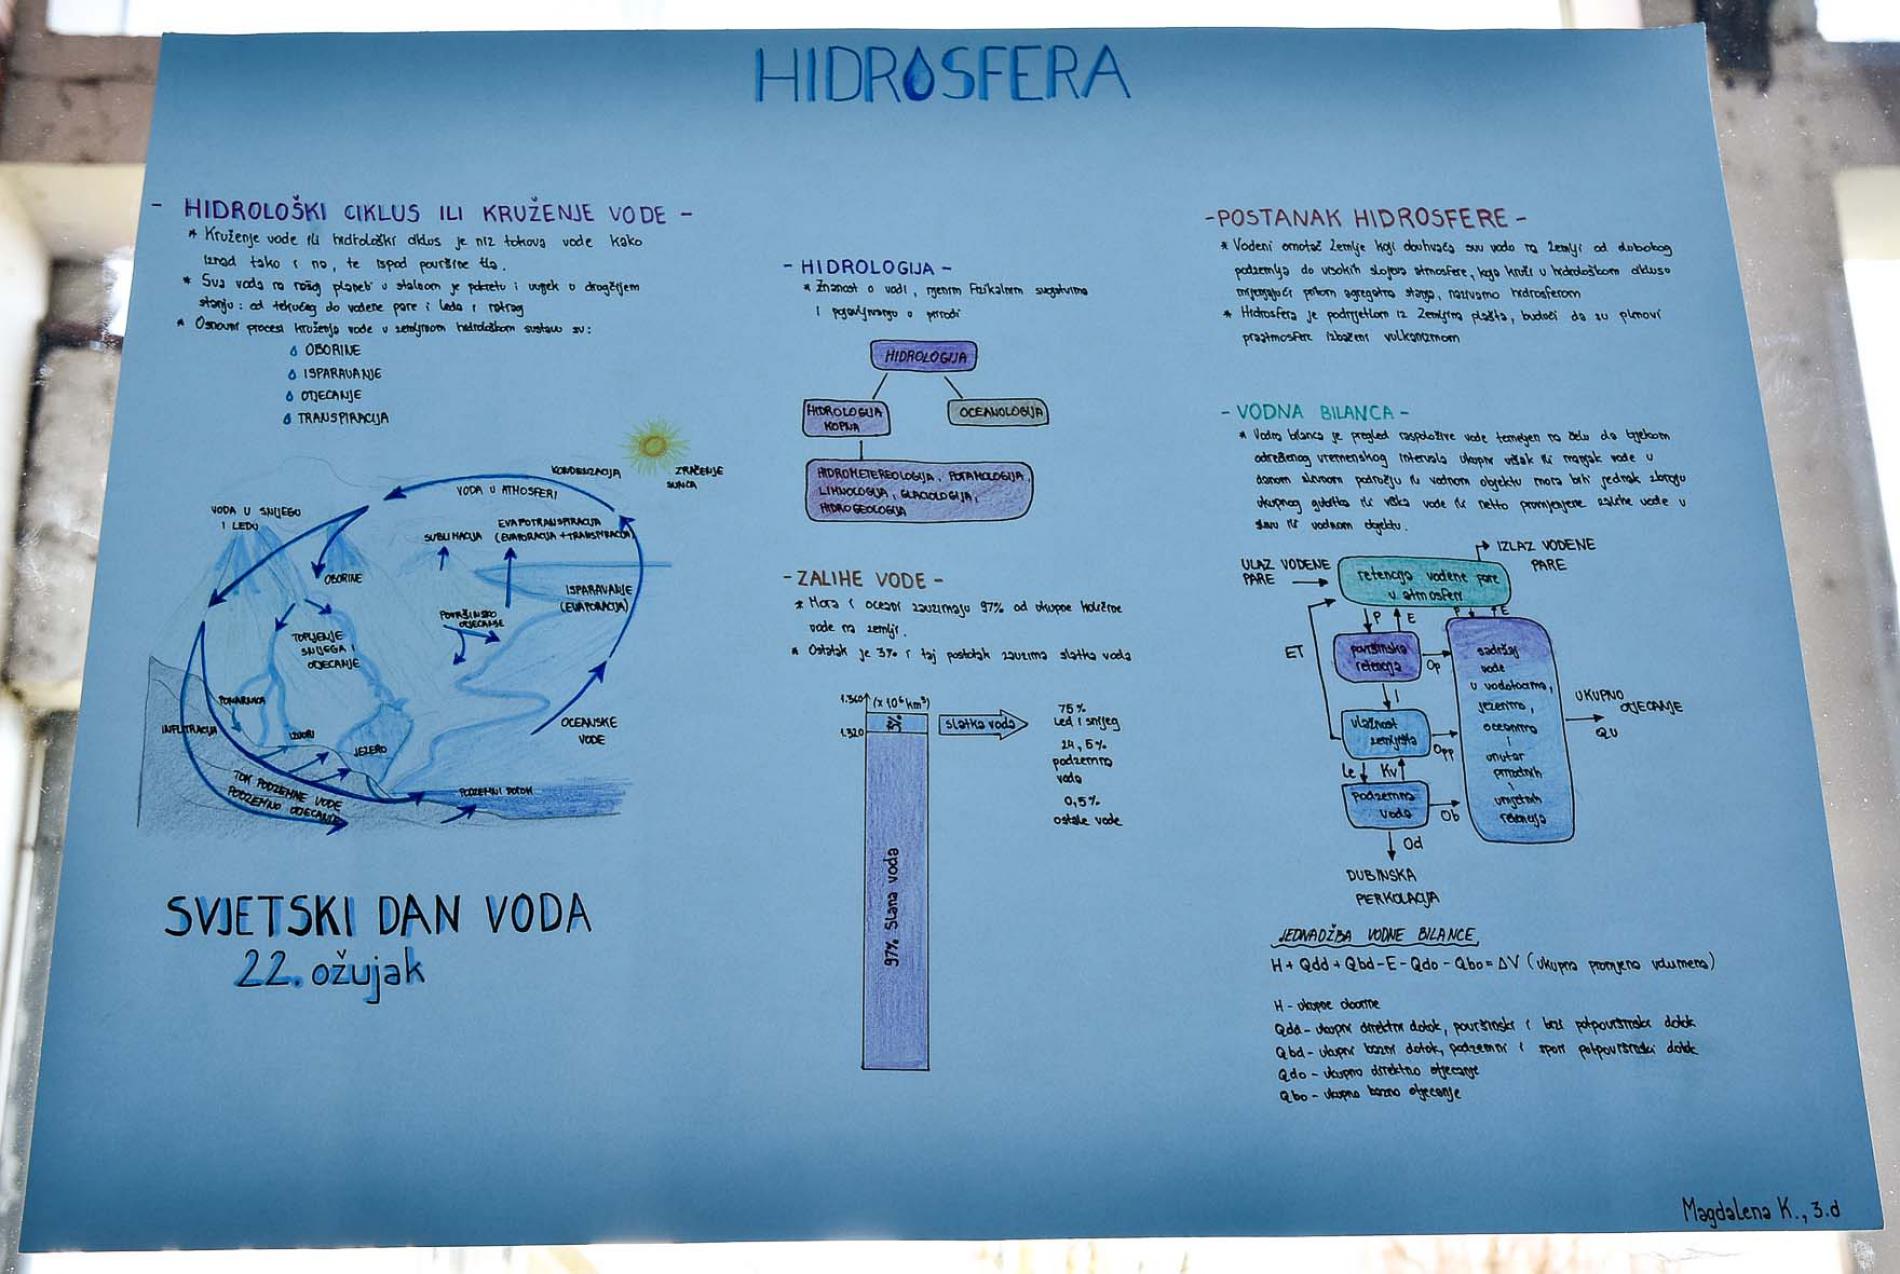 HIDROSFERA
- HIDROLOŠKI CIKLUS ILI KRUŽENJE VODE -
* Kruženje vode ili hidrološki ciklus je niz tokova vode kako
iznad tako i na, te ispod površine tla.
* Sva voda na našoj planeti u stalnom je pokretu i uvijek u drugčijem
stanju: od tekućeg do vodene pare i leda i natrag
* Osnovni procesi kruženja vode u zemljinom hidrološkom sustavu su:
OBORINE
ISPARAVANJE
OTJECANJE
TRANSPIRACIJA
KONDENZACIJA
ZRAČENJE
SUNCA
VODA U ATMOSFERI
VODA U SNIJEGU
I LEDU
SUBLIMACIJA
EVAPOTRANSPIRACIJA
(EVAPORACIJA + TRANSPIRACIJA)
OBORINE
ISPARAVANJE
(EVAPORACIJA)
POVRŠINSKO
OTJECANJE
TOPLJENJE
SNIJEGA I
OTJECANJE
PONORNICA
INFILTRACIJA
IZVORI
JEZERO
OCEANSKE
VODE
TOK PODZEMNE VODE
PODZEMNO OTJECANJE
PODZEMNI POTOK
SVJETSKI DAN VODA
22. ožujak
- HIDROLOGIJA -
* Znanost o vodi, njenim fizikalnim svojstvima
i pojavljivanju u prirodi
HIDROLOGIJA
HIDROLOGIJA
KOPNA
OCEANOLOGIJA
HIDROMETEREOLOGIJA, POTAMOLOGIJA,
LIMNOLOGIJA, GLACIOLOGIJA,
HIDROGEOLOGIJA
- ZALIHE VODE -
* Mora i oceani zauzimaju 97% od ukupne količine
vode na zemlji.
* Ostatak je 3% i taj postotak zauzima slatka voda
1.360
(x 10⁶ km³)
1.320
3%
slatka voda
97% Slana voda
75%
Led i snijeg
24,5%
podzemna
voda
0,5%
ostale vode
- POSTANAK HIDROSFERE -
* Vodeni omotač Zemlje koji obuhvaća svu vodu na Zemlji od dubokog
podzemlja do visokih slojeva atmosfere, koja kruži u hidrološkom ciklusu
mijenjajući pritom agregatna stanja, nazivamo hidrosferom
* Hidrosfera je podrijetlom iz Zemljina plašta, budući da su plinovi
praatmosfere izbačeni vulkanizmom
- VODNA BILANCA -
* Vodna bilanca je pregled raspoložive vode temeljen na da tijekom
određenog vremenskog intervala ukupni višak ili manjak vode u
danom slivnom području ili vodnom objektu mora biti jednak zbroju
ukupnog gubitka ili viška vode ili netto promjene zalihe vode u
slivu ili vodnom objektu.
ULAZ VODENE
PARE
IZLAZ VODENE
PARE
retencija vodene pare
u atmosferi
P
E
P
E
ET
površinska
retencija
Op
I
vlažnost
zemljišta
Opp
Le
Kv
podzemna
voda
Ob
Od
DUBINSKA
PERKOLACIJA
sadržaj
vode
u vodotocima,
jezerima,
oceanima
i
unutar
prirodnih
i
umjetnih
retencija
UKUPNO
OTJECANJE
QU
JEDNADŽBA VODNE BILANCE
H + Qdd + Qbd - E - Qdo - Qbo = ΔV (ukupna promjena volumena)
H - ukupne oborine
Qdd - ukupni direktni dotok, površinski i brzi potpovršinski dotok
Qbd - ukupni bazni dotok, podzemni i spori potpovršinski dotok
Qdo - ukupno direktno otjecanje
Qbo - ukupno bazno otjecanje
Magdalena K., 3.d